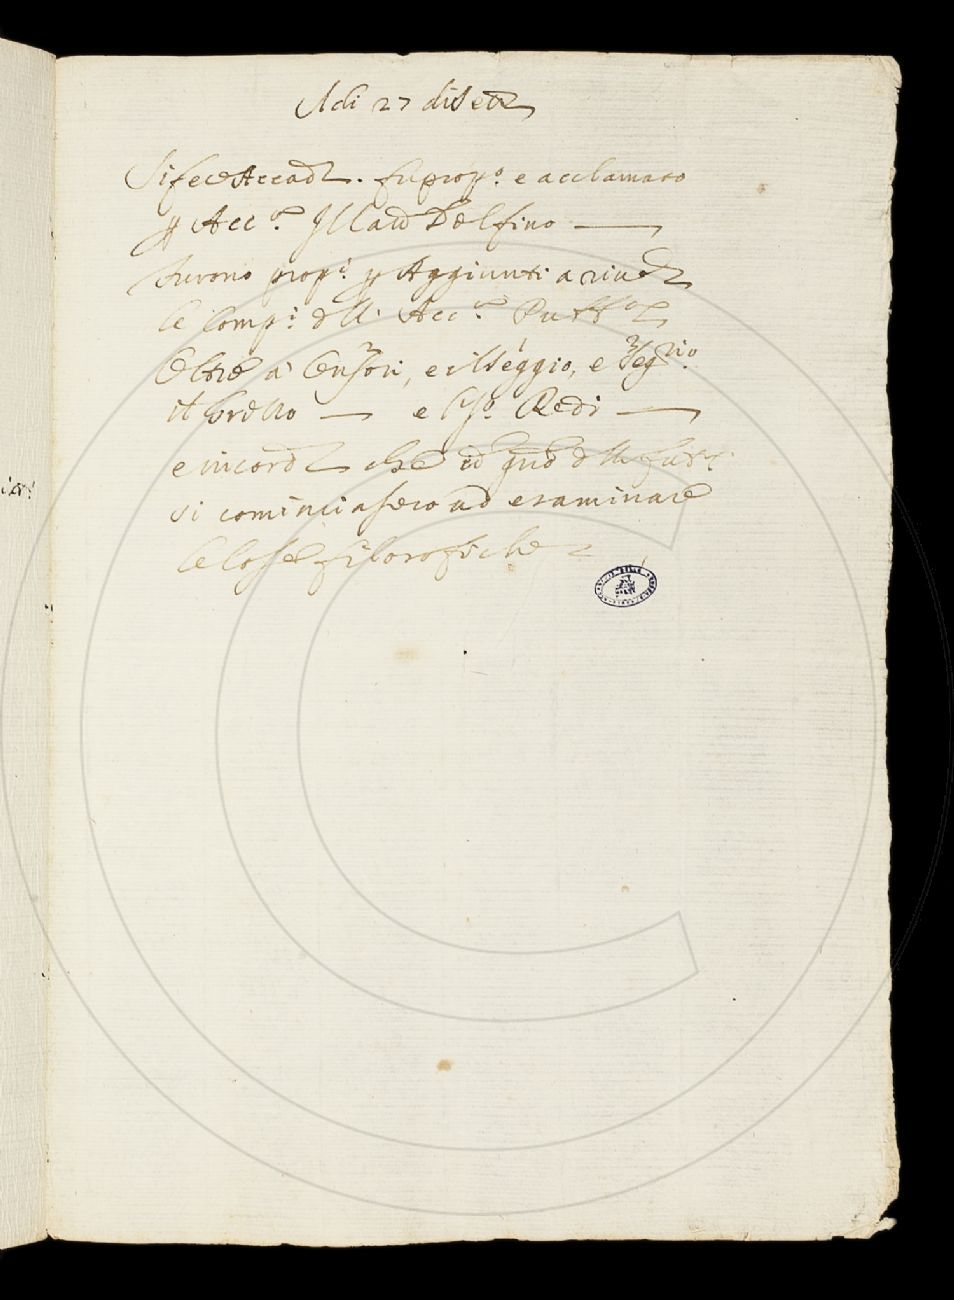 Adi 27 di Set
Si fece Accad. fu prop.o e acclamato
p Acc.o Il Card Delfino
furono prop.i p Aggiunti a rived
le Comp.i d ll. Acc.
Oltre a' Censori, e il Seggio, e Seg.rio
il Corello — e Cso. Redi —
e incord che id
si cominciassero ad esaminare
le Cose filosofiche